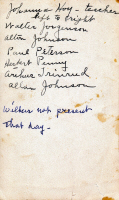 Johanna Hoy - teacher
left to right
Walter Jorgenson
Alton Johnson
Paul Peterson
Herbert Penny
Arthur
Allan Johnson
Wilbur not present
that day -